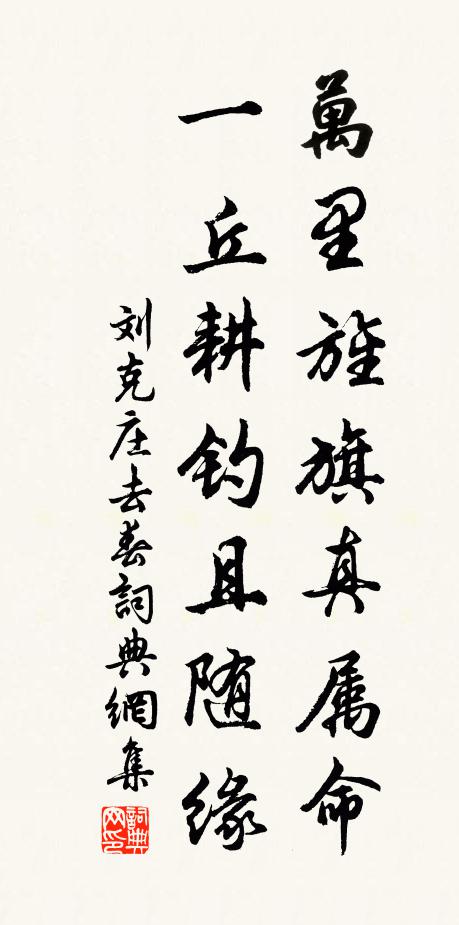 萬里旌旗真属命
一丘耕钓且随缘
刘克庄去春詞典網集
詞典网印